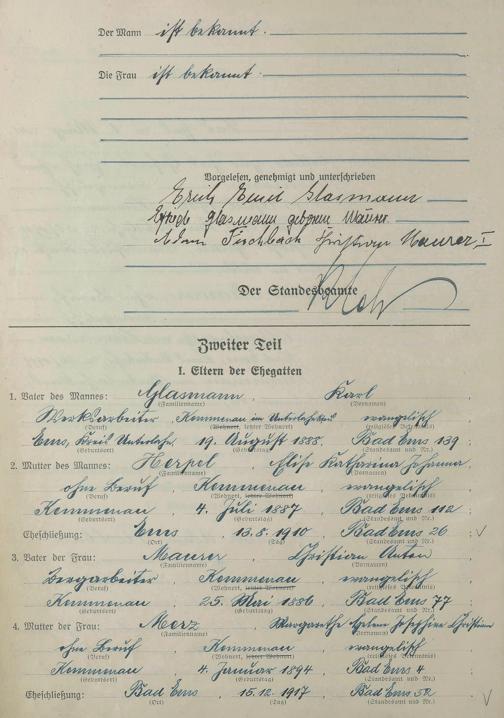 Der Mann ist bekannt.
Die Frau ist bekannt.
Vorgelesen, genehmigt und unterschrieben
Erich Emil Glasmann
Glasmann geborene Maurer
Adam Fischbach Christian Maurer I
Der Standesbeamte
Zweiter Teil
I. Eltern der Ehegatten
1. Vater des Mannes: Glasmann, Karl
(Familienname) (Vornamen)
Werksarbeiter, Kemmenau im Unterlahnkreis evangelisch
(Beruf) (Wohnort, letzter Wohnort) (religiöses Bekenntnis)
Ems, Kreis Unterlahn, 19. August 1888. Bad Ems 139.
(Geburtsort) (Geburtstag) (Standesamt und Nr.)
2. Mutter des Mannes: Herpel, Elise Katharina Johanna.
(Familienname) (Vornamen)
ohne Beruf, Kemmenau, evangelisch
(Beruf) (Wohnort, letzter Wohnort) (religiöses Bekenntnis)
Kemmenau, 4. Juli 1887 Bad Ems 112
(Geburtsort) (Geburtstag) (Standesamt und Nr.)
Eheschließung: Ems, 13.5.1910, Bad Ems 26
(Ort) (Tag) (Standesamt und Nr.)
3. Vater der Frau: Maurer, Christian Anton
(Familienname) (Vornamen)
Bergarbeiter, Kemmenau, evangelisch
(Beruf) (Wohnort, letzter Wohnort) (religiöses Bekenntnis)
Kemmenau, 25. Mai 1886. Bad Ems 77
(Geburtsort) (Geburtstag) (Standesamt und Nr.)
4. Mutter der Frau: Merz, Margarethe Josephine Christine
(Familienname) (Vornamen)
ohne Beruf, Kemmenau, evangelisch
(Beruf) (Wohnort, letzter Wohnort) (religiöses Bekenntnis)
Kemmenau, 4. Januar 1894. Bad Ems 4
(Geburtsort) (Geburtstag) (Standesamt und Nr.)
Eheschließung: Bad Ems, 15.12.1917, Bad Ems 52
(Ort) (Tag) (Standesamt und Nr.)